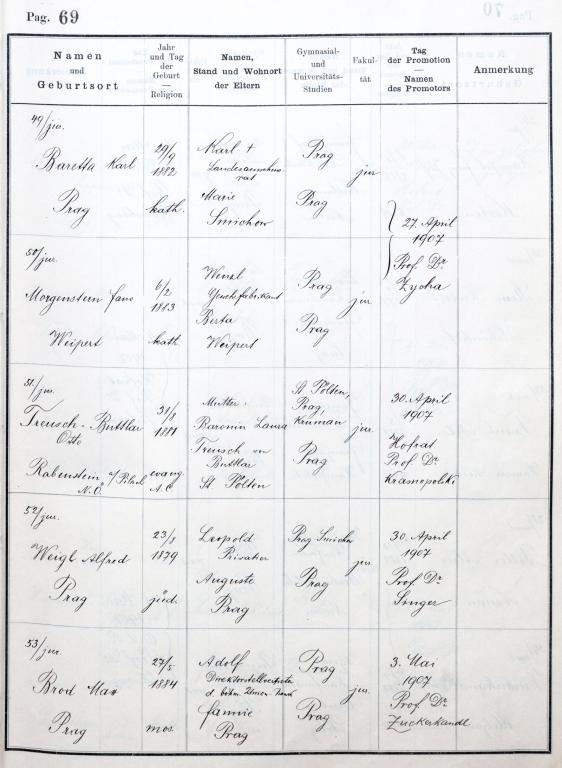 Pag. 69
Namen
und
Geburtsort
Jahr
und Tag
der
Geburt
Religion
Namen,
Stand und Wohnort
der Eltern
Gymnasial-
und
Universitäts-
Studien
Fakul-
tät
Tag
der Promotion
Namen
des Promotors
Anmerkung
49/jur.
Baretta Karl
Prag
29/9
1882
kath.
Karl +
Marie
Smichow
Prag
Prag
jur.
27. April
1907
Prof. Dr.
Zycha
50/jur.
Morgenstern
Weipert
6/2
1883
kath.
Wenzl
Berta
Weipert
Prag
Prag
jur.
51/jur.
Treusch-Buttlar
Otto
Rabenstein
N.Ö.
31/8
1881
evang.
A.C.
Mutter:
Baronin Laura
Treusch von
Buttlar
St Pölten
St Pölten,
Prag,
Krumau
Prag
jur.
30. April
1907
Hofrat
Prof. Dr.
Krasnopolski
52/jur.
Weigl Alfred
Prag
23/8
1879
jüd.
Leopold
Privatier
Auguste
Prag
Prag Smichow
Prag
jur.
30. April
1907
Prof. Dr.
Singer
53/jur.
Brod Max
Prag
27/5
1884
mos.
Adolf
Direktorstellvertreter
d. böhm. Union-Bank
Fannie
Prag
Prag
Prag
jur.
3. Mai
1907
Prof. Dr.
Zuckerkandl